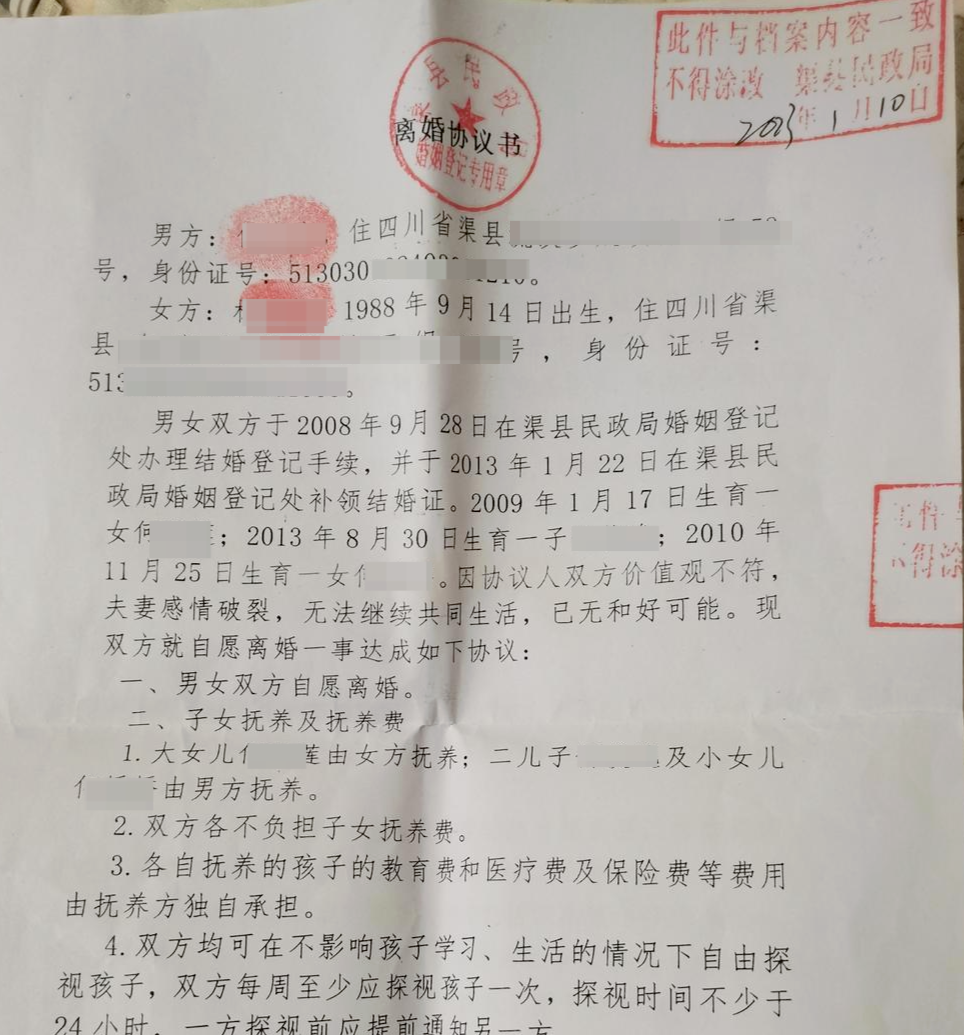 此件与档案内容一致
不得涂改 渠县民政局
2023年1月10日
县民政
离婚协议书
婚姻登记专用章
男方：，住四川省渠县
号，身份证号：513030
女方：1988年9月14日出生，住四川省渠
县号，身份证号：
513。
男女双方于2008年9月28日在渠县民政局婚姻登记
处办理结婚登记手续，并于2013年1月22日在渠县民
政局婚姻登记处补领结婚证。2009年1月17日生育一
女何；2013年8月30日生育一子；2010年
11月25日生育一女。因协议人双方价值观不符，
夫妻感情破裂，无法继续共同生活，已无和好可能。现
双方就自愿离婚一事达成如下协议：
一、男女双方自愿离婚。
二、子女抚养及抚养费
1.大女儿莲由女方抚养；二儿子及小女儿
由男方抚养。
2.双方各不负担子女抚养费。
3.各自抚养的孩子的教育费和医疗费及保险费等费用
由抚养方独自承担。
4.双方均可在不影响孩子学习、生活的情况下自由探
视孩子，双方每周至少应探视孩子一次，探视时间不少于
24小时，一方探视前应提前通知另一方
件
不得涂